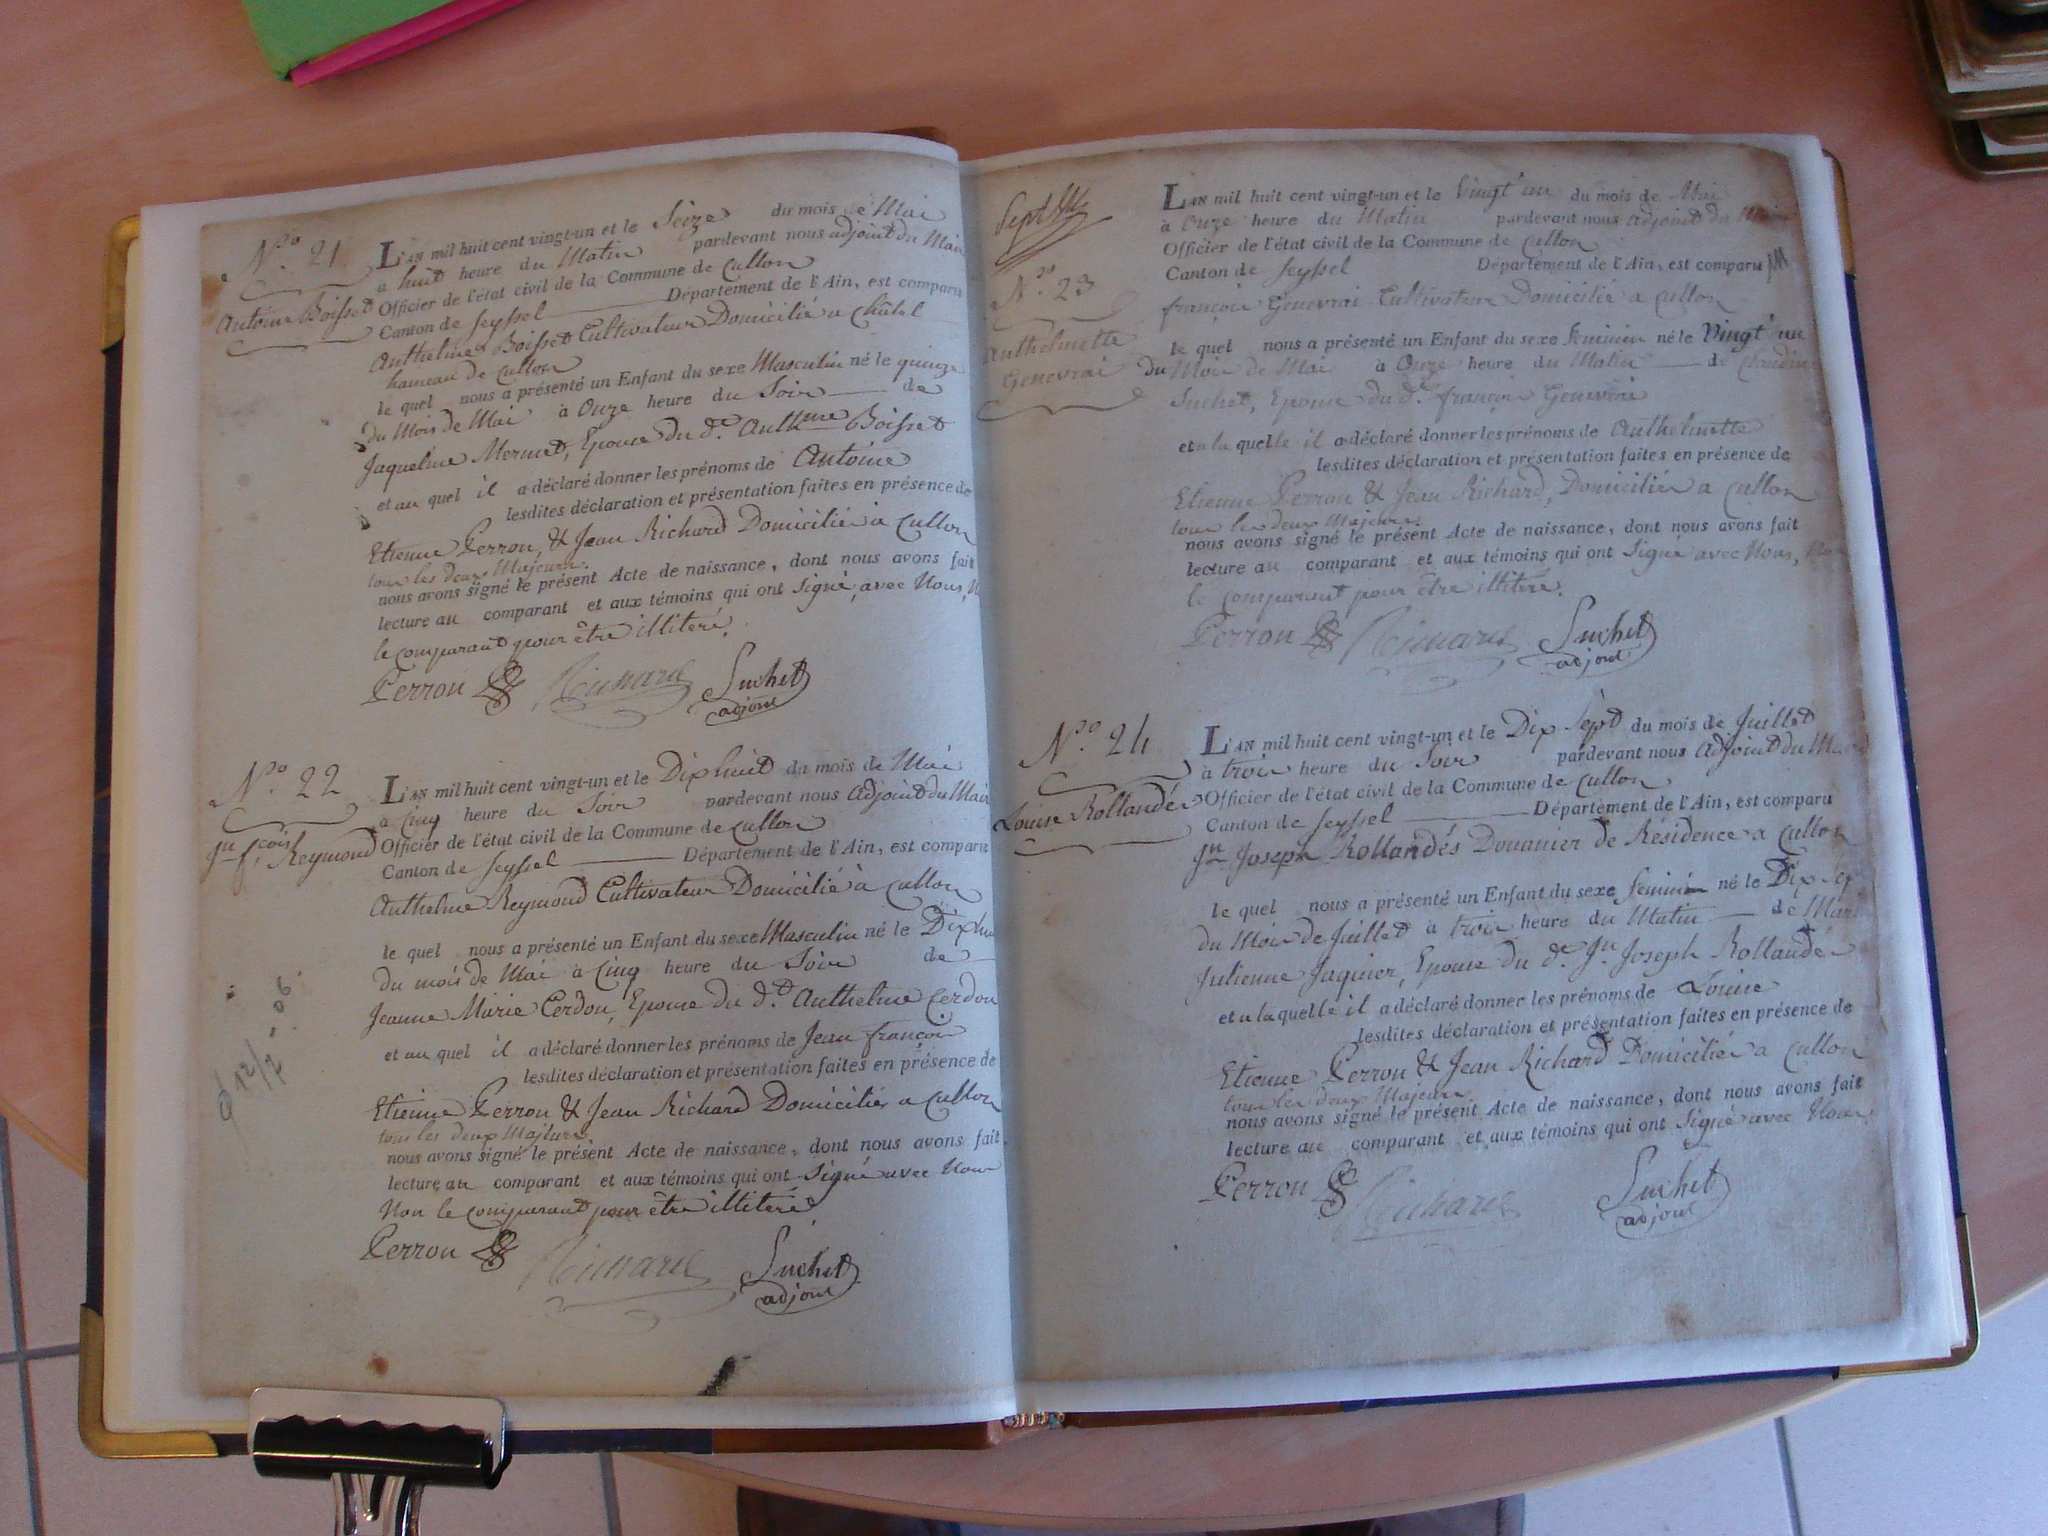 N.º 21
Antoine Boisset
L'AN mil huit cent vingt-un et le Seize du mois de Mai
à huit heure du Matin pardevant nous adjoint du Maire
Officier de l'état civil de la Commune de Cullon
Canton de Seyssel Département de l'Ain, est comparu
Anthelme Boisset Cultivateur Domicilié a Châtel
hameau de Cullon
le quel nous a présenté un Enfant du sexe Masculin né le quinze
du Mois de Mai à Onze heure du Soir de
Jaqueline Mermet, Epouse du d.t Anthme Boisset
et au quel il a déclaré donner les prénoms de Antoine
lesdites déclaration et présentation faites en présence de
Etienne Perron, & Jean Richard Domiciliés à Cullon
tous les deux Majeurs.
nous avons signé le présent Acte de naissance, dont nous avons fait
lecture au comparant et aux témoins qui ont Signé, avec Nous,
le comparant pour être illitéré.
Perron Richard Suchet
adjoint
N.º 22
Jn fçois Reymond
L'AN mil huit cent vingt-un et le Dix huit du mois de Mai
à Cinq heure du Soir pardevant nous Adjoint du Maire
Officier de l'état civil de la Commune de Cullon
Canton de Seyssel Département de l'Ain, est comparu
Anthelme Reymond Cultivateur Domicilié à Cullon
le quel nous a présenté un Enfant du sexe Masculin né le Dix hui
du mois de Mai à Cinq heure du Soir de
Jeanne Marie Cerdon, Epouse du d.t Anthelme Cerdon
et au quel il a déclaré donner les prénoms de Jean françois
lesdites déclaration et présentation faites en présence de
Etienne Perron & Jean Richard Domiciliés a Cullon
tous les deux Majeurs.
nous avons signé le présent Acte de naissance, dont nous avons fait
lecture au comparant et aux témoins qui ont Signé avec Nous
Non le comparant pour être illitéré
Perron Richard Suchet
adjoint
N.º 23
Anthelmette
Genevrai
L'AN mil huit cent vingt-un et le Vingt'un du mois de Mai
à Onze heure du Matin pardevant nous adjoint du Maire
Officier de l'état civil de la Commune de Cullon
Canton de Seyssel Département de l'Ain, est comparu
françois Genevrai Cultivateur Domicilié a Cullon
le quel nous a présenté un Enfant du sexe feminin né le Vingt'un
du Mois de Mai à Onze heure du Matin de Claudine
Suchet, Epouse du d.t françois Genevrai
et a la quelle il a déclaré donner les prénoms de Anthelmette
lesdites déclaration et présentation faites en présence de
Etienne Perron & Jean Richard, Domiciliés a Cullon
tous les deux Majeurs.
nous avons signé le présent Acte de naissance, dont nous avons fait
lecture au comparant et aux témoins qui ont Signé avec Nous,
le comparant pour être illitéré.
Perron Richard Suchet
adjoint
N.º 24
Louise Rollandés
L'AN mil huit cent vingt-un et le Dix Sept du mois de Juillet
à trois heure du Soir pardevant nous Adjoint du Maire
Officier de l'état civil de la Commune de Cullon
Canton de Seyssel Département de l'Ain, est comparu
Jn Joseph Rollandés Douanier de Résidence a Cullon
le quel nous a présenté un Enfant du sexe feminin né le Dix Sep
du Mois de Juillet à trois heure du Matin de Mari
Julienne Jaquier, Epouse du d.t Jn Joseph Rollandés
et a la quelle il a déclaré donner les prénoms de Louise
lesdites déclaration et présentation faites en présence de
Etienne Perron & Jean Richard Domiciliés a Cullon
tous les deux Majeurs.
nous avons signé le présent Acte de naissance, dont nous avons fait
lecture au comparant et aux témoins qui ont Signé avec Nous
Perron Richard Suchet
adjoint